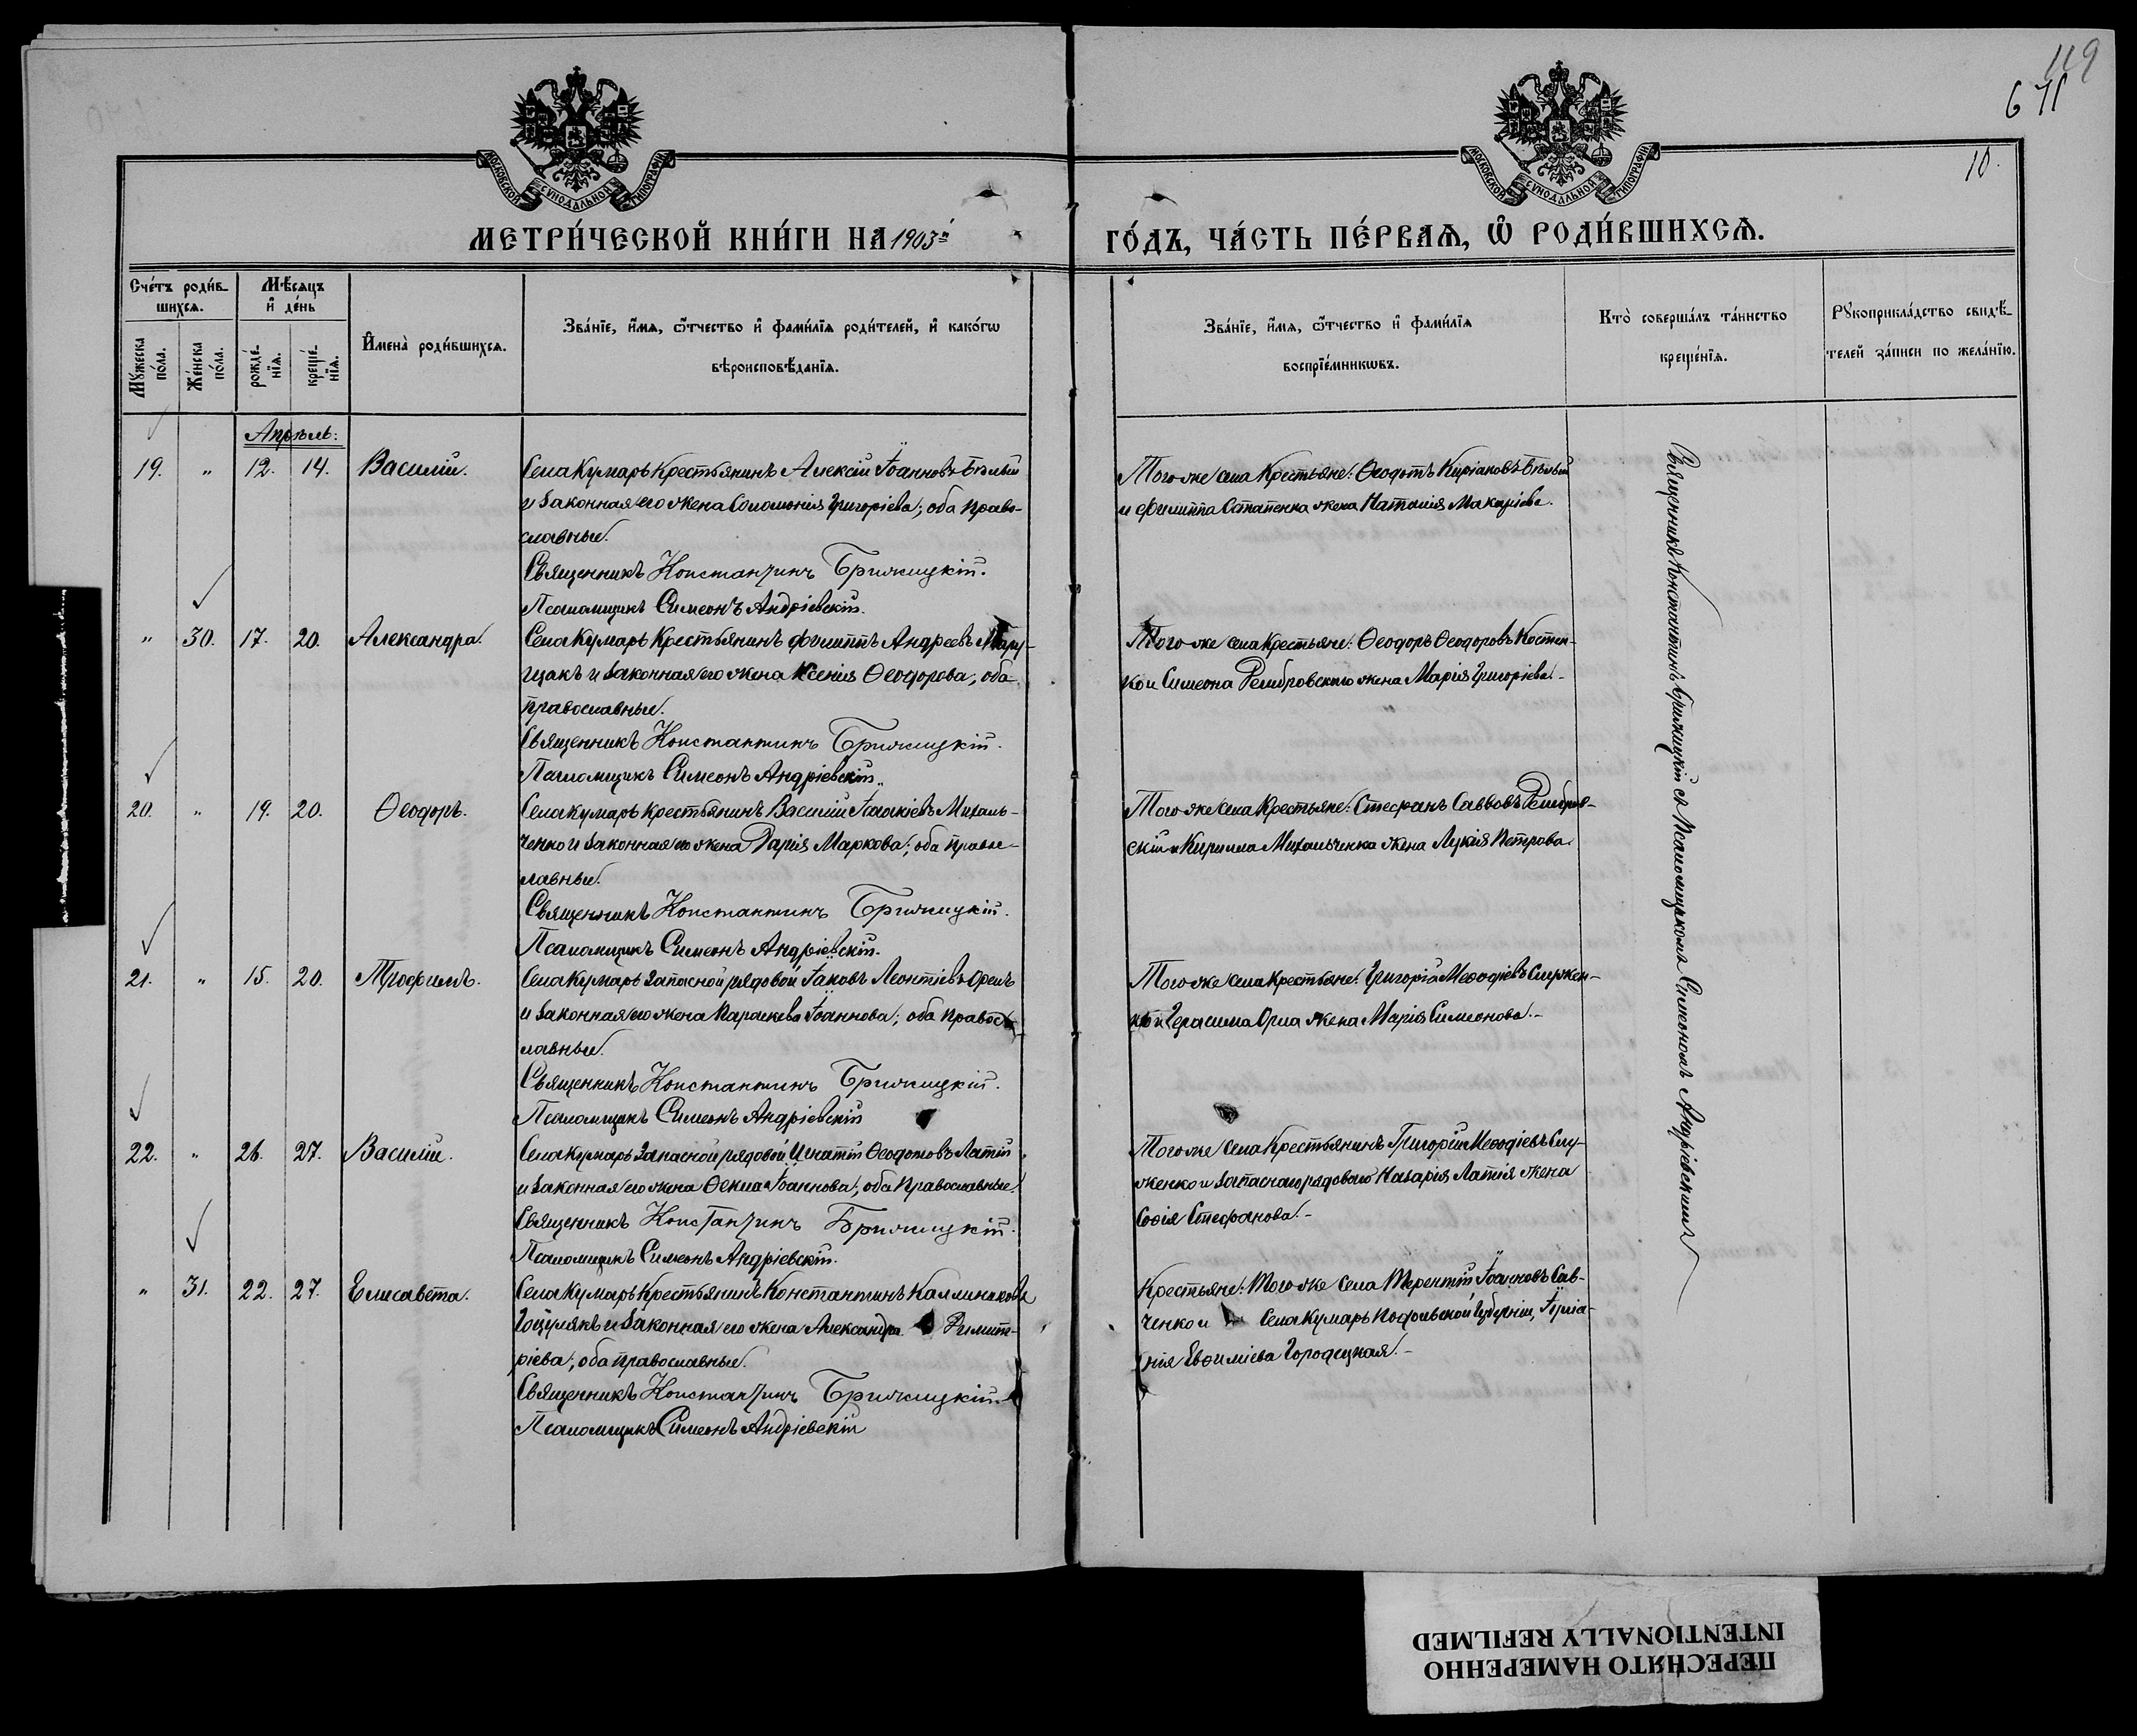 119
6 71
10.
МОСКОВСКОЙ СѴНОДАЛЬНОЙ ТИПОГРАФІИ
МОСКОВСКОЙ СѴНОДАЛЬНОЙ ТИПОГРАФІИ
МЕТРИ́ЧЕСКОЙ КНИ́ГИ НА 1903й
ГО́ДЪ, ЧА́СТЬ ПЕ́РВАѦ, Ѡ҆ РОДИ́ВШИХСѦ.
Сче́тъ роди́в-
шихсѧ.
Мѣ́сѧцъ
и҆ де́нь
Мꙋ́жеска по́ла.
Же́нска по́ла.
рожде́-нїѧ.
креще́-нїѧ.
И҆мена̀ роди́вшихсѧ.
Зва́нїе, и҆́мѧ, ѻ҆́тчество и҆ фами́лїѧ роди́телей, и҆ како́гѡ
вѣроисповѣ́данїѧ.
Зва́нїе, и҆́мѧ, ѻ҆́тчество и҆ фами́лїѧ
воспрїе́мникѡвъ.
Кто̀ соверша́лъ та́инство
креще́нїѧ.
Рꙋкоприкла́дство свидѣ́-
телей за́писи по жела́нїю.
Апрѣль:
19. " 12. 14. Василій.
Села Кумаръ Крестьянинъ Алексій Іоанновъ Бѣлый
и законная его жена Соломонія Григорієва; оба право-
славные.
Священникъ Константинъ Бржицкій.
Псаломщикъ Симеонъ Андріевскій.
Того же села Крестьяне: Ѳеодотъ Киріаковъ Бѣлый
и Филиппа Остапенка жена Наталія Макаріева.
" 30. 17. 20. Александра.
Села Кумаръ Крестьянинъ Филиппъ Андреевъ
щакъ и законная его жена Ксенія Ѳеодорова, оба
православные.
Священникъ Константинъ Бржицкій.
Псаломщикъ Симеонъ Андріевскій.
Того же села Крестьяне: Ѳеодоръ Ѳеодоровъ Костен-
ко и Симеона жена Марія Григоріева.-
20. " 19. 20. Ѳеодоръ.
Села Кумаръ Крестьянинъ Василій Михаль-
ченко и законная его жена Дарія Маркова; оба правос-
лавные.
Священникъ Константинъ Бржицкій.
Псаломщикъ Симеонъ Андріевскій.
Того же села Крестьяне: Стефанъ Саввовъ
скій и Кирилла Михальченка жена Лукія Петрова.
21. " 15. 20. Трофимъ.
Села Кумаръ Запасной рядовой Іаковъ Леонтіевъ Орелъ
и законная его жена Параскева Іоаннова; оба правос-
лавные.
Священникъ Константинъ Бржицкій.
Псаломщикъ Симеонъ Андріевскій
Того же села Крестьяне: Григорій Меѳодіевъ Служен-
ко и Герасима Орла жена Марія Симеонова.-
22. " 26. 27. Василій.
Села Кумаръ Запасной рядовой Игнатій Ѳеодотовъ Лапій
и законная его жена Ѳекла Іоаннова; оба Православные.
Священникъ Константинъ Бржицкій.
Псаломщикъ Симеонъ Андріевскій.
Того же села Крестьянинъ Григорій Меѳодіевъ Слу-
женко и запаснаго рядового Назарія Лапія жена
Софія Стефанова.-
" 31. 22. 27. Елисавета.
Села Кумаръ Крестьянинъ Константинъ Каллиниковъ
Гоцулякъ и законная его жена Александра Димит-
ріева; оба православные.
Священникъ Константинъ Бржицкій.
Псаломщикъ Симеонъ Андріевскій
Крестьяне: Того же села Терентій Іоанновъ Сав-
ченко и Села Кумаръ Подольской Губерніи, Іуліа-
нія Евѳиміева Городецкая.-
Священникъ Константинъ Бржицкій съ Псаломщикомъ Симеономъ Андріевскимъ
ПЕРЕСНЯТО НАМЕРЕННО
INTENTIONALLY REFILMED